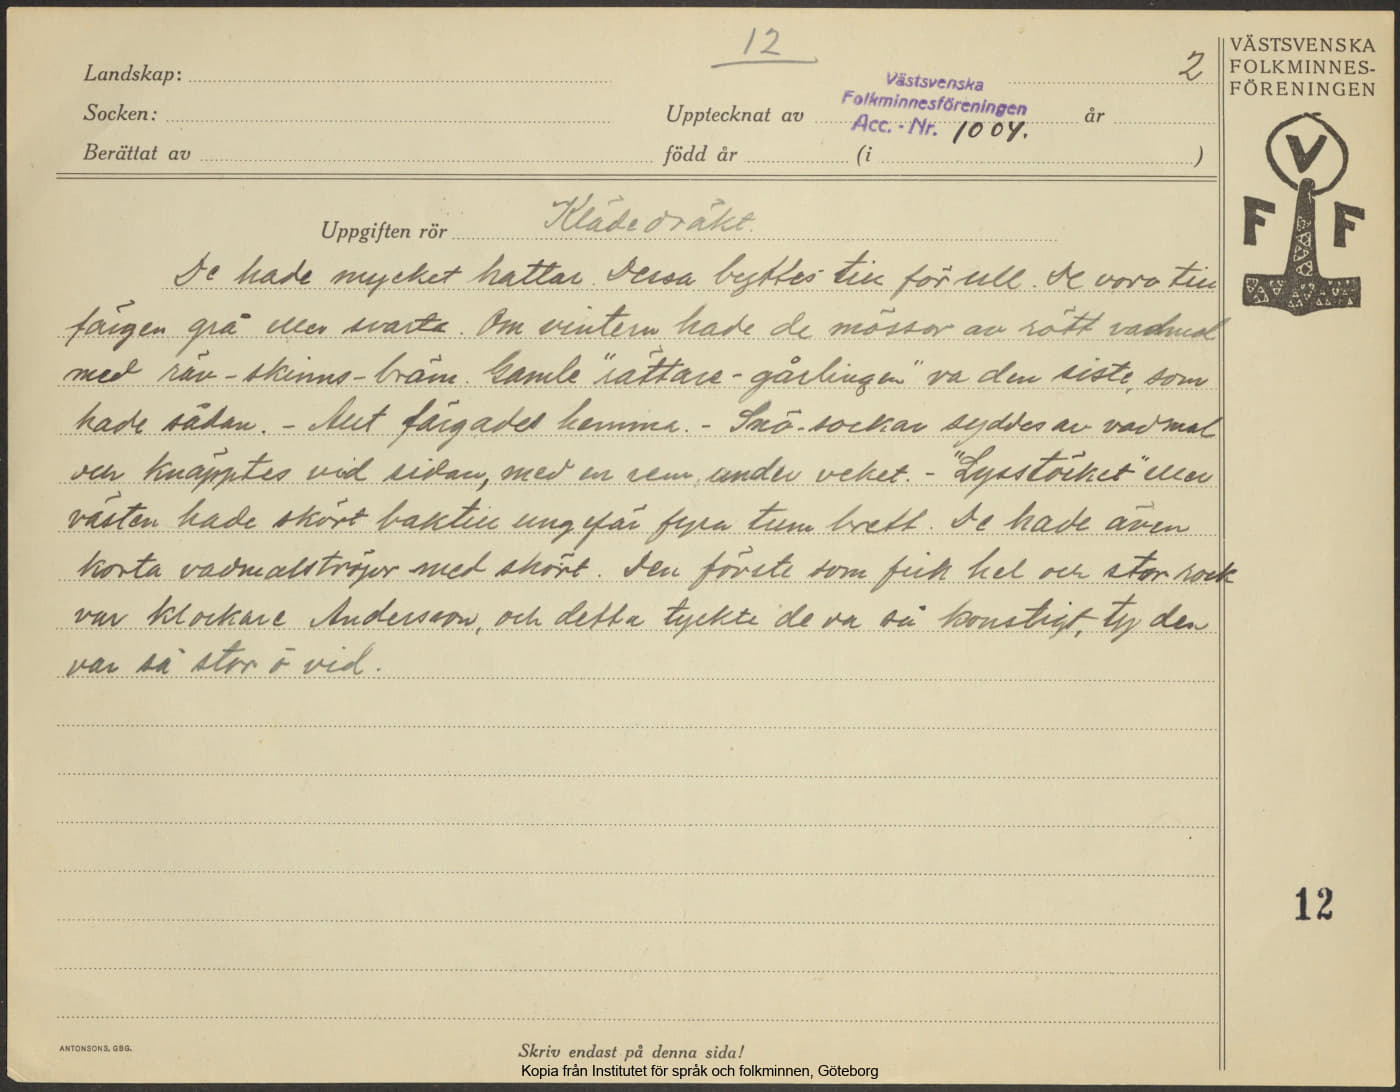 12
2
VÄSTSVENSKA
FOLKMINNES-
FÖRENINGEN
Landskap:
Socken:
Upptecknat av
Västsvenska
Folkminnesföreningen
Acc. - Nr. 1004.
år
Berättat av
född år
(i
)
V
F F
Uppgiften rör Klädedräkt.
De hade mycket hattar. Dessa byttes till för ull. De voro till
färgen grå eller svarta. Om vintern hade de mössor av rött vadmal
med räv-skinns-bräm. Gamle "rättare-gårlingen" va den siste, som
hade sådan. - Allt färgades hemma. - Snö-sockar syddes av vadmal
och knäpptes vid sidan, med en rem under veket. - "Lysstöcket" eller
västen hade skört baktill ungefär fyra tum brett. De hade även
korta vadmalströjor med skört. Den förste som fick hel och stor rock
var klockare Andersson, och detta tyckte de va så konstigt, ty den
var så stor ö vid.
12
ANTONSONS, GBG.
Skriv endast på denna sida!
Kopia från Institutet för språk och folkminnen, Göteborg